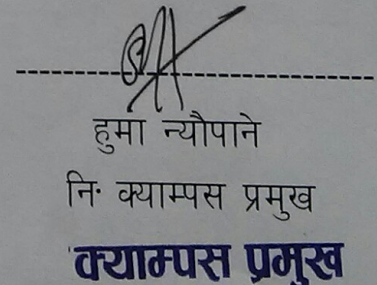 हुमा न्यौपाने
नि॰ क्याम्पस प्रमुख
क्याम्पस प्रमुख